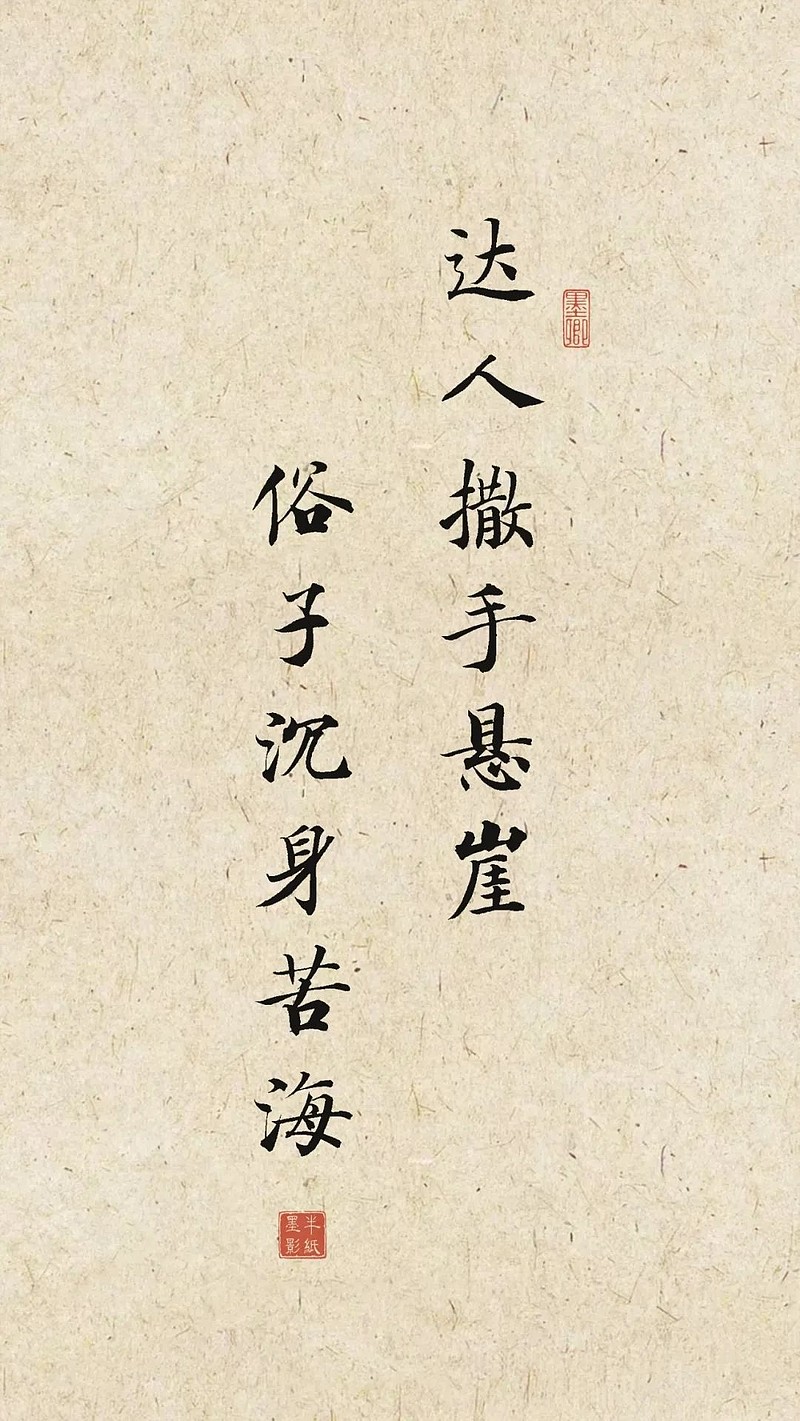 达人撒手悬崖
墨卿
俗子沉身苦海
半纸墨影